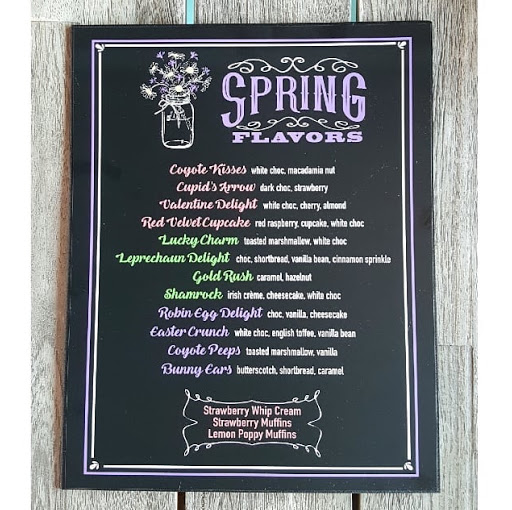 SPRING
FLAVORS
Coyote Kisses white choc, macadamia nut
Cupid's Arrow dark choc, strawberry
Valentine Delight white choc, cherry, almond
Red Velvet Cupcake red raspberry, cupcake, white choc
Lucky Charm toasted marshmallow, white choc
Leprechaun Delight choc, shortbread, vanilla bean, cinnamon sprinkle
Gold Rush caramel, hazelnut
Shamrock irish crème, cheesecake, white choc
Robin Egg Delight choc, vanilla, cheesecake
Easter Crunch white choc, english toffee, vanilla bean
Coyote Peeps toasted marshmallow, vanilla
Bunny Ears butterscotch, shortbread, caramel
Strawberry Whip Cream
Strawberry Muffins
Lemon Poppy Muffins